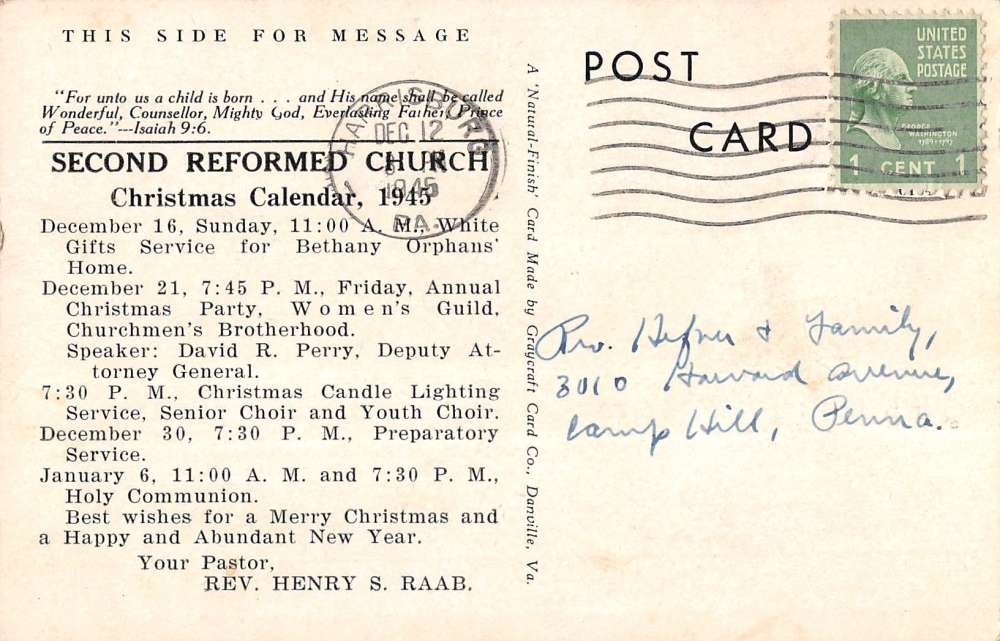 THIS SIDE FOR MESSAGE
"For unto us a child is born . . . and His name shall be called
Wonderful, Counsellor, Mighty God, Everlasting Father, Prince
of Peace."---Isaiah 9:6.
SECOND REFORMED CHURCH
Christmas Calendar, 1945
December 16, Sunday, 11:00 A. M., White
Gifts Service for Bethany Orphans'
Home.
December 21, 7:45 P. M., Friday, Annual
Christmas Party, Women's Guild,
Churchmen's Brotherhood.
Speaker: David R. Perry, Deputy At-
torney General.
7:30 P. M., Christmas Candle Lighting
Service, Senior Choir and Youth Choir.
December 30, 7:30 P. M., Preparatory
Service.
January 6, 11:00 A. M. and 7:30 P. M.,
Holy Communion.
Best wishes for a Merry Christmas and
a Happy and Abundant New Year.
Your Pastor,
REV. HENRY S. RAAB.
HARRISBURG
DEC 12
1945
PA.
A 'Natural-Finish' Card Made by Graycraft Card Co., Danville, Va.
POST
CARD
UNITED
STATES
POSTAGE
GEORGE
WASHINGTON
1789-1797
1 CENT 1
Rev. Hefner & Family,
3010 Harvard Avenue,
Camp Hill, Penna.